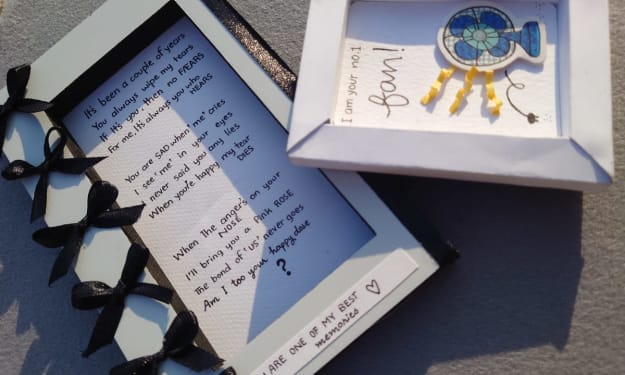 It's been a couple of years
You always wipe my tears
If it's you, then no FEARS
For me, It's always you who
HEARS
You are SAD when 'me' cries
I see 'me' in your eyes
I never said you any lies
When you're happy my tear
DIES
When the anger's on your
NOSE
I'll bring you a Pink ROSE
The bond of 'US' never goes
Am I too your happy dose
?
ARE ONE OF MY BEST
memories ♡
I am your no.1
fan!